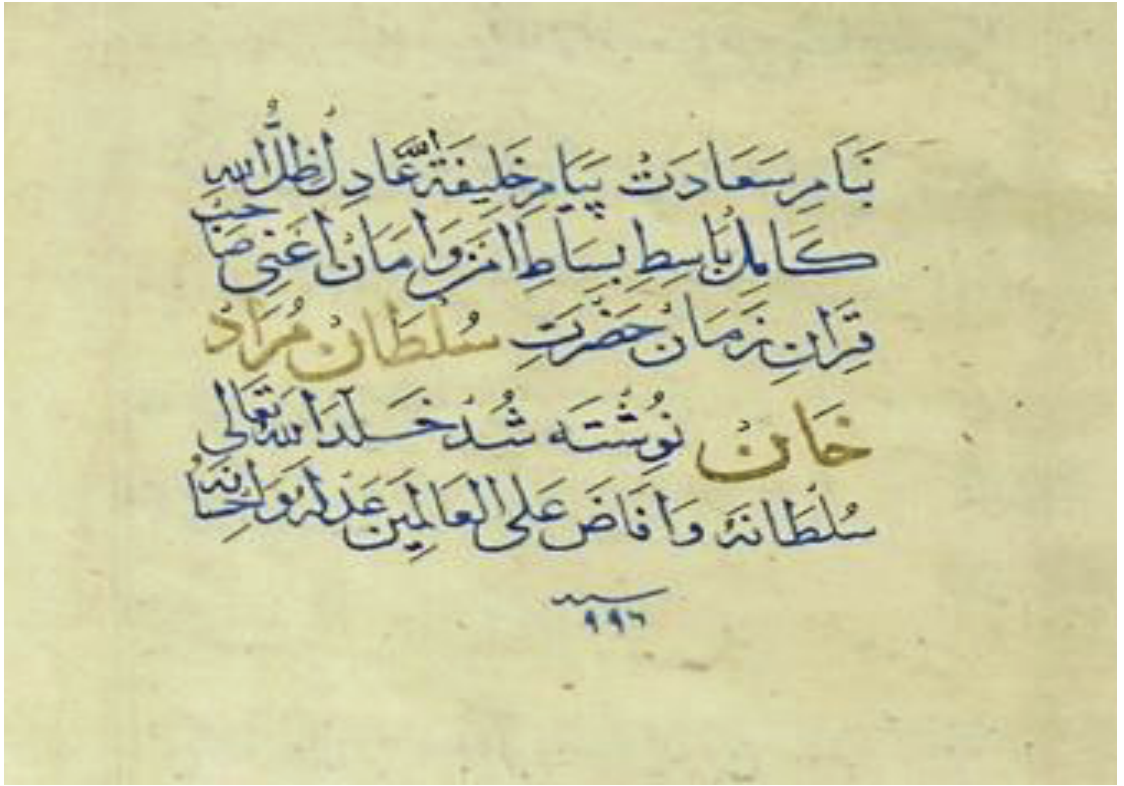 بَنَامِ سَعَادَتْ پَيَامِ خَلِيفَةُ اللّٰه عَادِلْ ظِلُّ اللّٰهِ
كَامِلْ بَاسِطِ بِسَاطِ اَمْن وَاَمَانْ اَعْنِى صَاحِبْ
قِرَانِ زَمَانْ حَضْرَتِ سُلْطَانْ مُرَادْ
خَانْ نُوِشْتَه شُدْ خَلَّدَ اللّٰه تَعَالٰى
سُلْطَانَهُ وَاَفَاضَ عَلَى الْعَالَمِينَ عَدْلَهُ وَاِحْسَانَهُ
سنه
٩٩٦